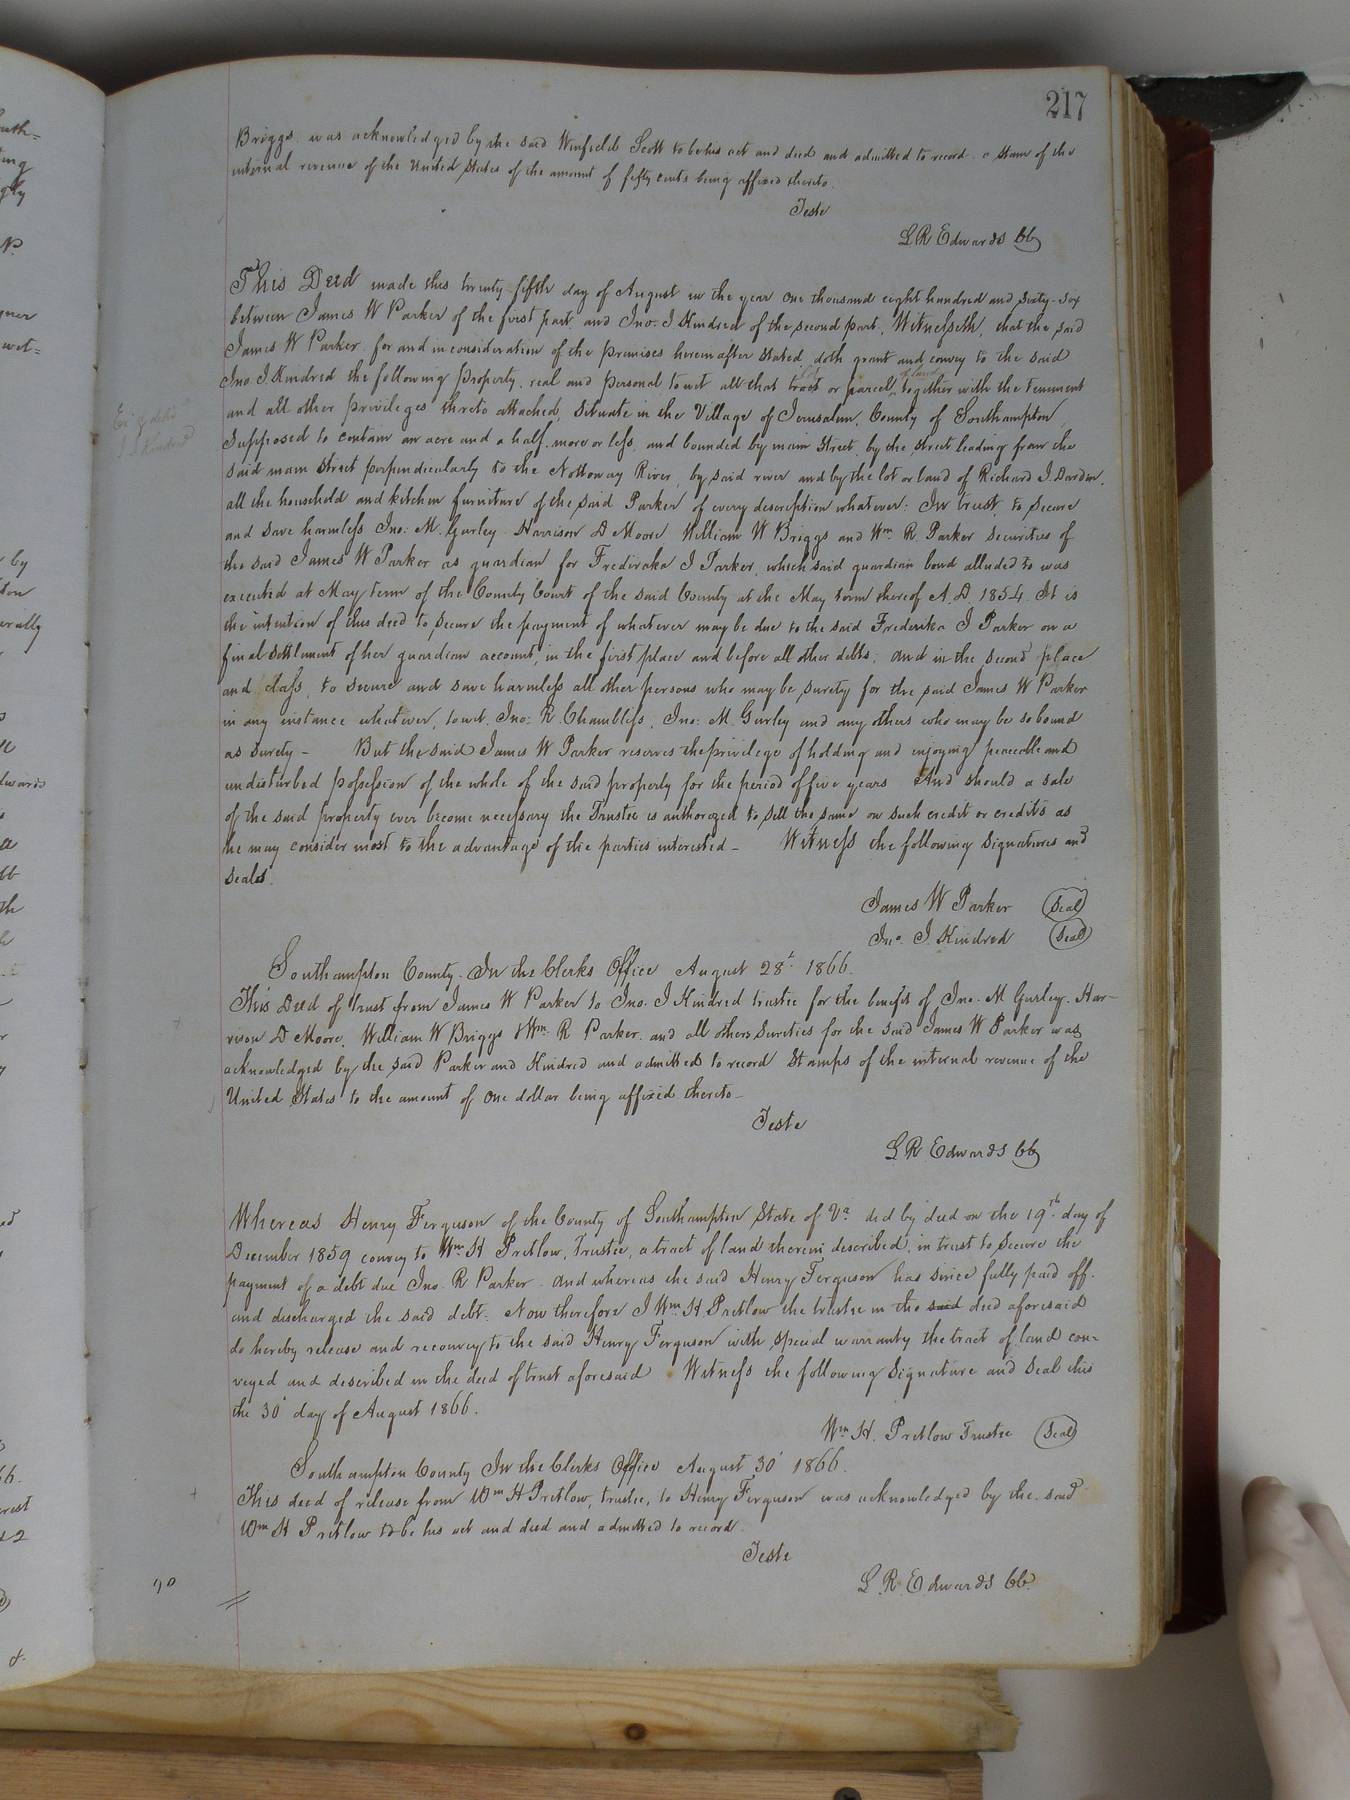 217
Briggs was acknowledged by the said Winfield Scott to be his act and deed and admitted to record a Stam of the
internal revenue of the United States of the amount of fifty cents being affixed thereto.
Teste
L R Edwards CC
This Deed made this twenty fifth day of August in the year one thousand eight hundred and sixty-six
between James W Parker of the first part and Jno. J. Kindred of the second part, Witnesseth, that the said
James W Parker for and in consideration of the premises hereinafter stated doth grant and convey to the said
lot of land
Jno J. Kindred the following property, real and personal to wit all that tract or parcel together with the tenement
and all other privileges thereto attached, situate in the Village of Jerusalem, County of Southampton
Ex & deld
J J Kindred
Supposed to contain an acre and a half, more or less, and bounded by main Street, by the street leading from the
said main street perpendicularly to the Nottoway River, by said river and by the lot or land of Richard J. Darden,
all the household and kitchen furniture of the said Parker of every description whatever: In trust to secure
and save harmless Jno: M. Gurley Harrison D Moore William W Briggs and Wm R. Parker securities of
the said James W Parker as guardian for Frediraka J Parker, which said guardian bond alluded to was
executed at May term of the County Court of the said County at the May term thereof A.D. 1854. It is
the intention of this deed to secure the payment of whatever may be due to the said Frederika J Parker on a
final settlement of her guardian account, in the first place and before all other debts; and in the second place
and class, to secure and save harmless all other persons who may be surety for the said James W Parker
in any instance whatever, to wit, Jno: R. Chambliss, Jno: M. Gurley and any others who may be so bound
as surety - But the said James W Parker reserves the privilege of holding and enjoying peaceable and
undisturbed possession of the whole of the said property for the period of five years And should a sale
of the said property ever become necessary the Trustee is authorized to sell the same on such credit or credits as
he may consider most to the advantage of the parties interested - Witness the following signatures and
seals.
James W Parker (Seal)
Jno. J. Kindred (Seal)
Southampton County. In the Clerks Office August 28t 1866.
This Deed of trust from James W Parker to Jno. J Kindred trustee for the benefit of Jno. M Gurley. Har-
rison D Moore, William W Briggs & Wm R Parker and all others Sureties for the said James W Parker was
acknowledged by the said Parker and Kindred and admitted to record Stamps of the internal revenue of the
United States to the amount of one dollar being affixed thereto -
Teste
L R Edwards CC
Whereas Henry Ferguson of the County of Southampton State of Va did by deed on the 19th day of
December 1859 convey to Wm H Pretlow, Trustee, a tract of land therein described, in trust to secure the
payment of a debt due Jno. R Parker. and whereas the said Henry Ferguson has since fully paid off.
and discharged the said debt. Now therefore I Wm H. Pretlow the trustee in the said deed aforesaid
do hereby release and reconvey to the said Henry Ferguson with special warranty the tract of land con-
veyed and described in the deed of trust aforesaid Witness the following signature and seal this
the 30 day of August 1866.
Wm H. Pretlow Trustee (Seal)
Southampton County In the Clerks Office August 30 1866.
This deed of release from Wm H Pretlow, trustee, to Henry Ferguson was acknowledged by the said
Wm H Pretlow to be his act and deed and admitted to record.
Teste
L. R. Edwards CC.